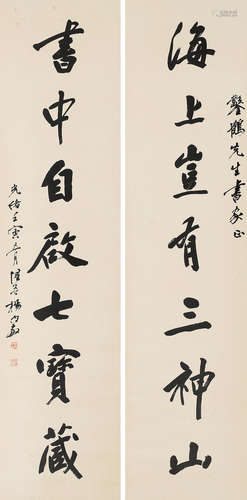 海上豈有三神山
鑿鶴先生書家正
書中自啟七寶藏
光緒壬寅三月惺吾楊守敬